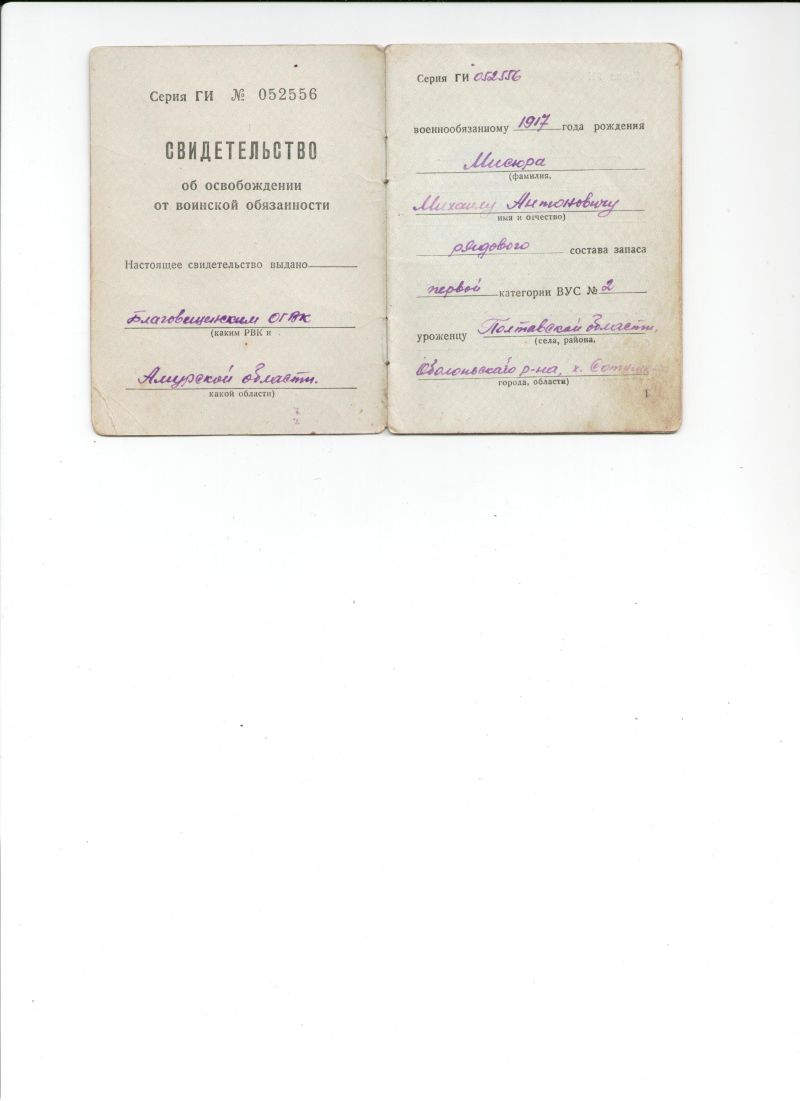 Серия ГИ № 052556
СВИДЕТЕЛЬСТВО
об освобождении
от воинской обязанности
Настоящее свидетельство выдано
Благовещенским ОГВК
(каким РВК и
Амурской области.
какой области)
Серия ГИ 052556
военнообязанному 1917 года рождения
Мисюра
(фамилия,
Михаилу Антоновичу
имя и отчество)
рядового состава запаса
первой категории ВУС № 2
уроженцу Полтавской области,
(села, района,
Оболонского р-на, х.
города, области)
1